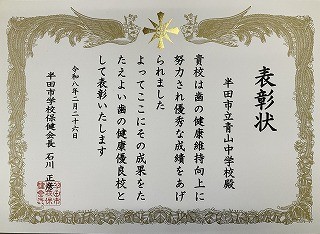 表彰状
半田市立青山中学校殿
貴校は歯の健康維持向上に
努力され優秀な成績をあげ
られました
よってここにその成果をた
たえよい歯の健康優良校と
して表彰いたします
令和八年二月二十六日
半田市学校保健会長 石川 正彦